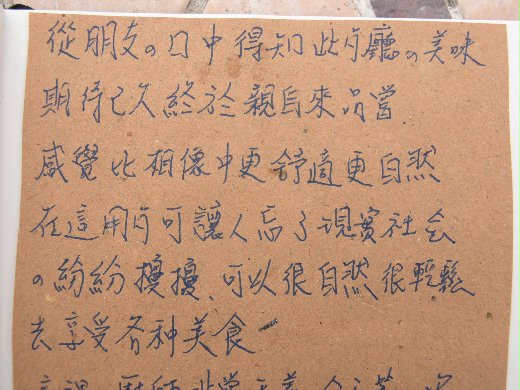 從朋友の口中得知此冇廳の美味
期待已久終於親自來品嘗.
感覺比相像中更舒適更自然
在這用冇可讓人忘了現實社会
の紛紛擾擾、可以很自然很輕鬆
去享受各种美食